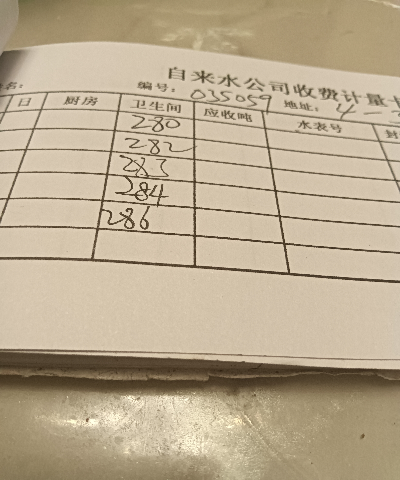 自来水公司收费计量
名: 编号: 035059 地址: 4-
日 厨房 卫生间 应收吨 水表号
280
282
283
284
286